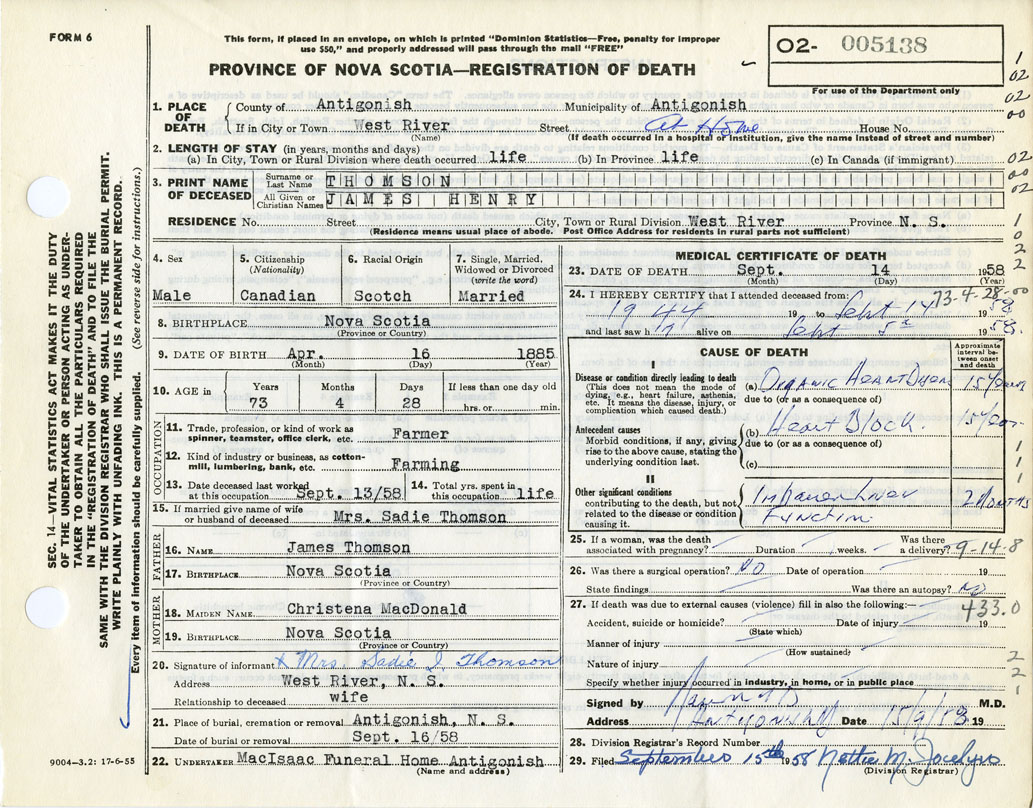 FORM 6
This form, if placed in an envelope, on which is printed "Dominion Statistics—Free, penalty for improper
use $50," and properly addressed will pass through the mail "FREE"
PROVINCE OF NOVA SCOTIA—REGISTRATION OF DEATH
O2- 005138
For use of the Department only
1. PLACE OF DEATH County of Antigonish Municipality of Antigonish
If in City or Town West River Street At Home House No.
(Name) (If death occurred in a hospital or institution, give the name instead of street and number)
2. LENGTH OF STAY (in years, months and days)
(a) In City, Town or Rural Division where death occurred life (b) In Province life (c) In Canada (if immigrant)
3. PRINT NAME OF DECEASED
Surname or Last Name THOMSON
All Given or Christian Names JAMES HENRY
RESIDENCE No. Street City, Town or Rural Division West River Province N. S.
(Residence means usual place of abode. Post Office Address for residents in rural parts not sufficient)
4. Sex Male
5. Citizenship (Nationality) Canadian
6. Racial Origin Scotch
7. Single, Married, Widowed or Divorced (write the word) Married
8. BIRTHPLACE Nova Scotia
(Province or Country)
9. DATE OF BIRTH Apr. 16 1885
(Month) (Day) (Year)
10. AGE in Years Months Days If less than one day old
73 4 28 hrs. or min.
OCCUPATION
11. Trade, profession or kind of work as spinner, teamster, office clerk, etc. Farmer
12. Kind of industry or business, as cotton-mill, lumbering, bank, etc. Farming
13. Date deceased last worked at this occupation Sept. 13/58
14. Total yrs. spent in this occupation life
15. If married give name of wife or husband of deceased Mrs. Sadie Thomson
FATHER
16. NAME James Thomson
17. BIRTHPLACE Nova Scotia
(Province or Country)
MOTHER
18. MAIDEN NAME Christena MacDonald
19. BIRTHPLACE Nova Scotia
(Province or Country)
20. Signature of informant x Mrs. Sadie J. Thomson
Address West River, N. S.
Relationship to deceased wife
21. Place of burial, cremation or removal Antigonish, N. S.
Date of burial or removal Sept. 16/58
22. UNDERTAKER MacIsaac Funeral Home Antigonish
(Name and address)
MEDICAL CERTIFICATE OF DEATH
23. DATE OF DEATH Sept. 14 1958
(Month) (Day) (Year)
73-4-28-00
24. I HEREBY CERTIFY that I attended deceased from:
1944 19 to Sept 14 1958
and last saw h alive on Sept 5 1958.
CAUSE OF DEATH
Approximate interval between onset and death
I
Disease or condition directly leading to death
(This does not mean the mode of dying, e.g., heart failure, asthenia, etc. It means the disease, injury, or complication which caused death.)
(a) Organic Heart 15 Years
due to (or as a consequence of)
Antecedent causes
Morbid conditions, if any, giving rise to the above cause, stating the underlying condition last.
(b) Heart Block. 15 Years
due to (or as a consequence of)
(c)
II
Other significant conditions contributing to the death, but not related to the disease or condition causing it.
Liver Function 2 Months
25. If a woman, was the death associated with pregnancy? Duration weeks. Was there a delivery? 9-14-8
26. Was there a surgical operation? NO Date of operation 19
State findings Was there an autopsy? NO
27. If death was due to external causes (violence) fill in also the following:—
433.0
Accident, suicide or homicide? Date of injury 19
(State which)
Manner of injury
(How sustained)
Nature of injury
Specify whether injury occurred in industry, in home, or in public place
Signed by M.D.
Address Antigonish Date 15/9/58 19
28. Division Registrar's Record Number
29. Filed September 15th 1958 Nettie M. Jocelyn
(Division Registrar)
SEC. 14—VITAL STATISTICS ACT MAKES IT THE DUTY
OF THE UNDERTAKER OR PERSON ACTING AS UNDER-
TAKER TO OBTAIN ALL THE PARTICULARS REQUIRED
IN THE "REGISTRATION OF DEATH" AND TO FILE THE
SAME WITH THE DIVISION REGISTRAR WHO SHALL ISSUE THE BURIAL PERMIT.
WRITE PLAINLY WITH UNFADING INK. THIS IS A PERMANENT RECORD.
Every item of information should be carefully supplied. (See reverse side for instructions.)
9004—3.2: 17-6-55
1
02
02
00
02
00
02
1
0
2
2
1
1
1
2
2
1